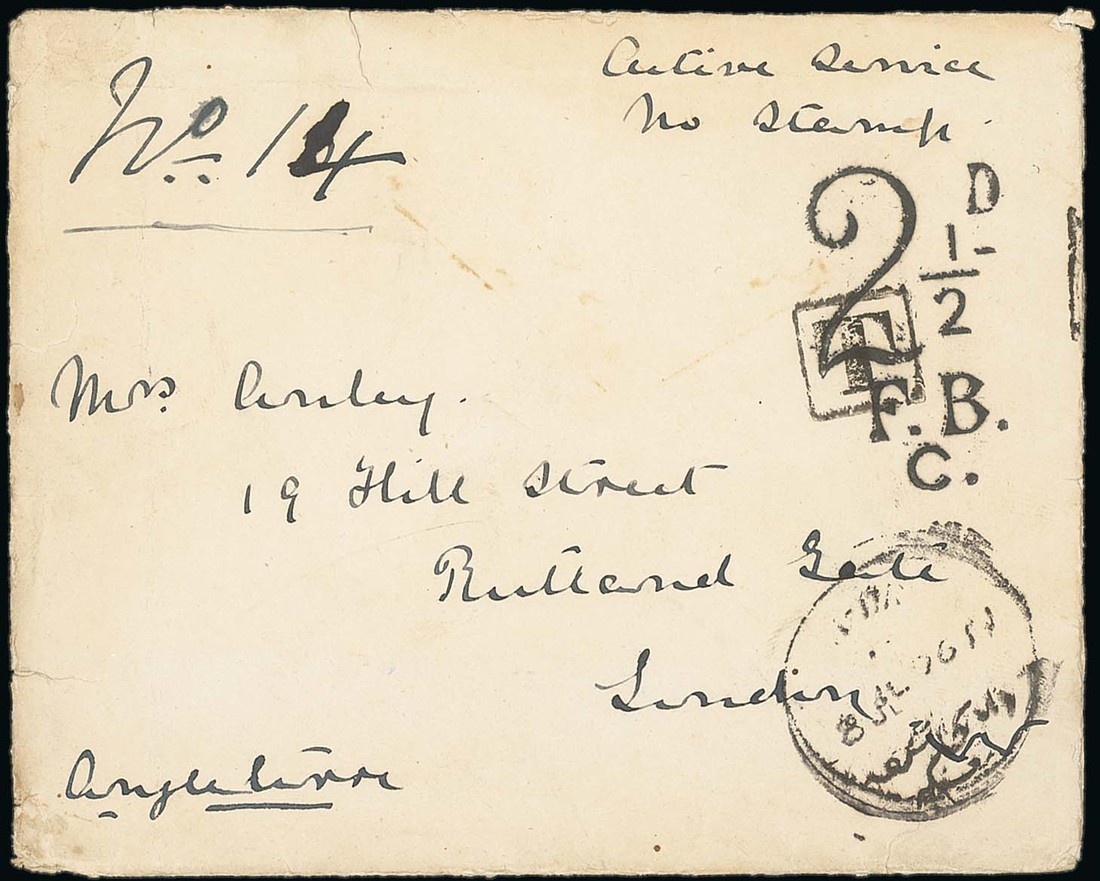 Active Service
No Stamp.
No 14
2 1/2 D
T
F.B.
C.
Mrs. Anley.
19 Hill Street
Rutland Gate
London
Angleterre